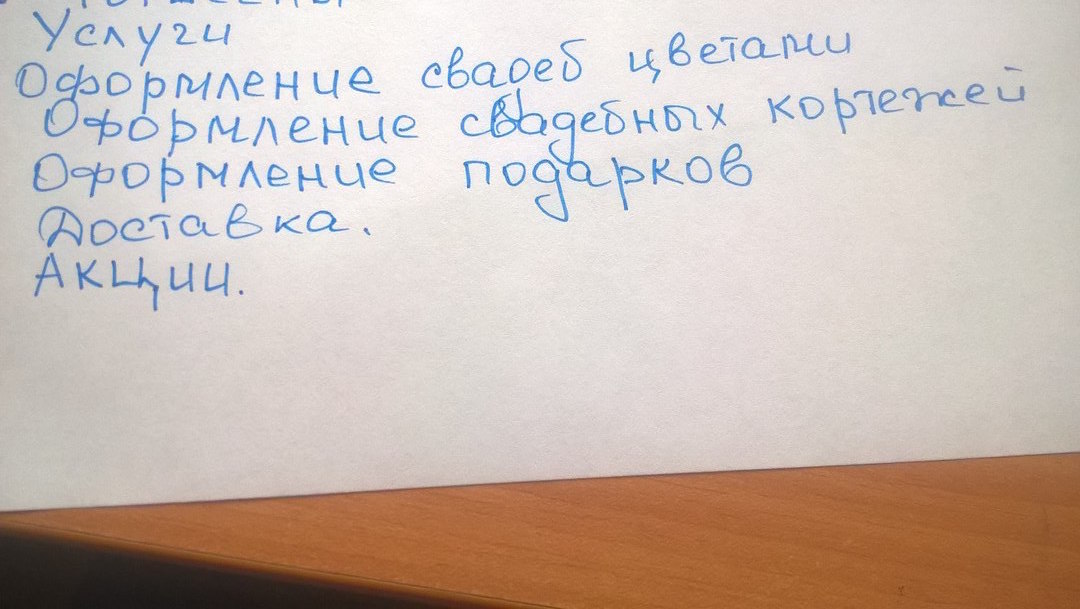 Услуги
Оформление свадеб цветами
Оформление свадебных кортежей
Оформление подарков
Доставка.
Акции.